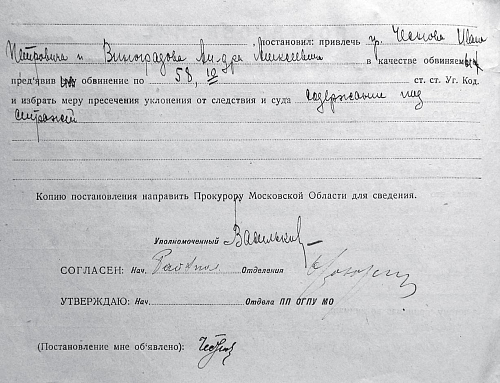 постановил: привлечь гр. Чеснова Ивана
Петровича и Виноградова Ал-дра Алексеевича в качестве обвиняемых
пред'явив им обвинение по 58, 10 ст. ст. Уг. Код.
и избрать меру пресечения уклонения от следствия и суда содержание под
стражей
Копию постановления направить Прокурору Московской Области для сведения.
Уполномоченный Васильков
СОГЛАСЕН: Нач. Отделения
УТВЕРЖДАЮ: Нач. Отдела ПП ОГПУ МО
(Постановление мне об'явлено):